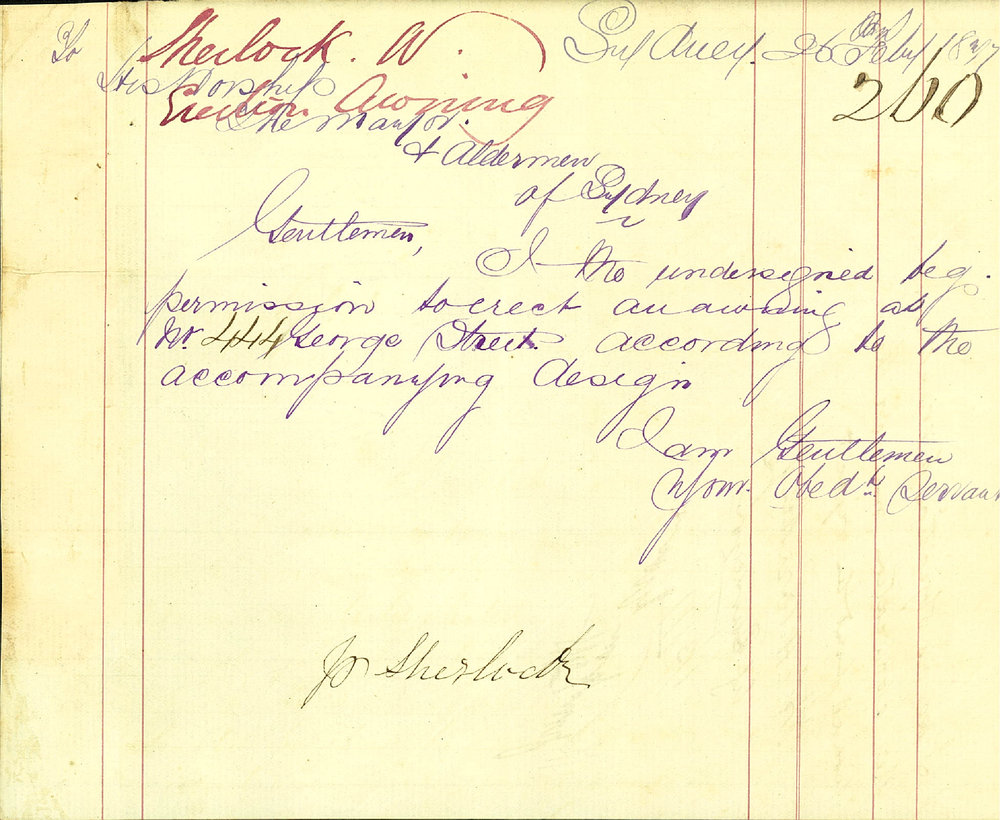 To Sherlock. W. Sydney. 26 Feby
His Worship 260
Erection Awning
The Mayor.
& Aldermen
of Sydney
Gentlemen,
I the undersigned beg.
permission to erect an awning at
No. 444 George Street. according to the
accompanying design
I am Gentlemen
Your. Obedt. Servant
W Sherlock